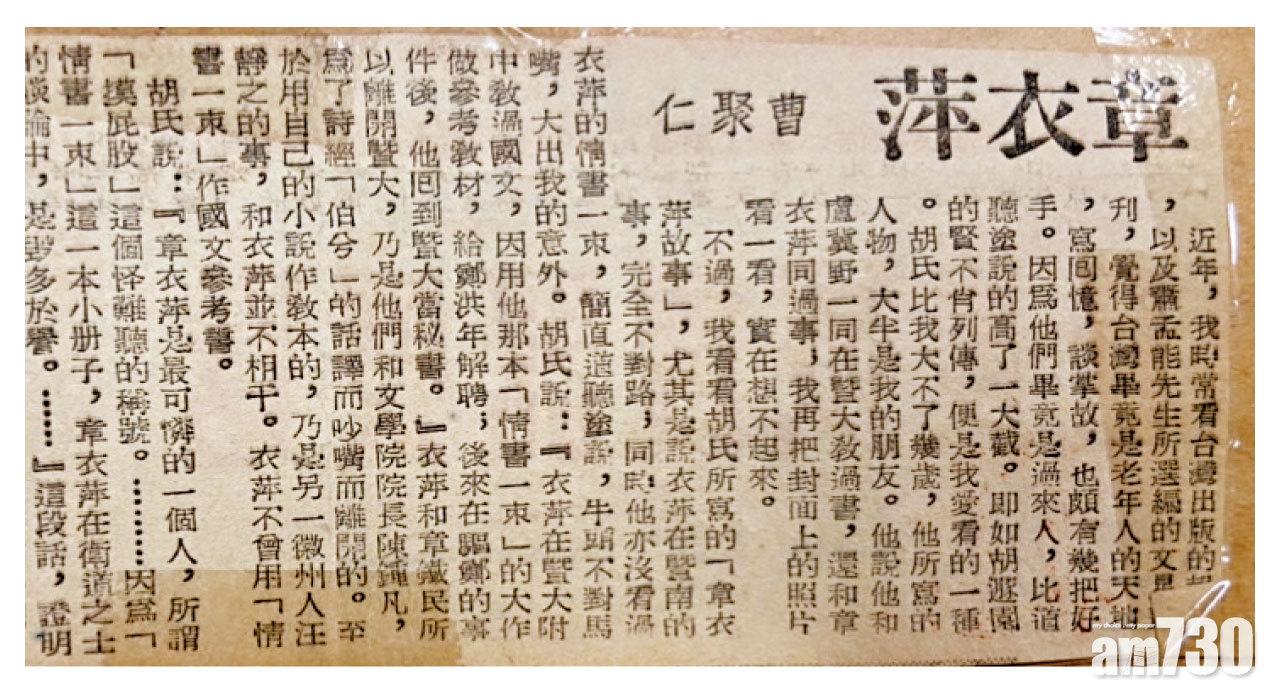 章衣萍
曹聚仁
近年,我時常看台灣出版的
,以及蕭孟能先生所選編的文星
刊,覺得台灣畢竟是老年人的天地
,寫回憶,談掌故,也頗有幾把好
手。因爲他們畢竟是過來人,比道
聽塗說的高了一大截。即如胡遯園
的賢不肖列傳,便是我愛看的一種
。胡氏比我大不了幾歲,他所寫的
人物,大半是我的朋友。他說他和
盧冀野一同在暨大教過書,還和章
衣萍同過事,我再把封面上的照片
看一看,實在想不起來。
不過,我看看胡氏所寫的「章衣
萍故事」,尤其是說衣萍在暨南的
事,完全不對路;同時他亦沒看過
衣萍的情書一束,簡直道聽塗說,牛頭不對馬
嘴,大出我的意外。胡氏說:『衣萍在暨大附
中教過國文,因用他那本「情書一束」的大作
做參考教材,給鄭洪年解聘;後來在驅鄭的事
件後,他回到暨大當秘書。』衣萍和章鐵民所
以離開暨大,乃是他們和文學院院長陳鍾凡,
爲了詩經「伯兮」的話譯而吵嘴而離開的。至
於用自己的小說作教本的,乃是另一徽州人汪
靜之的事,和衣萍並不相干。衣萍不曾用「情
書一束」作國文參考書。
胡氏說:『章衣萍是最可憐的一個人,所謂
「摸屁股」這個怪難聽的稱號。………因爲「
情書一束」這一本小册子,章衣萍在衛道之士
的談論中,是毀多於譽。……』這段話,證明
my choice my paper
am730